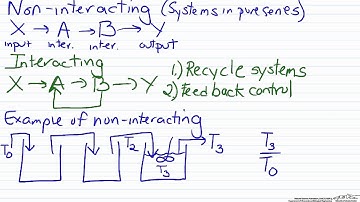 Non-interacting (Systems in pure series)
X → A → B → Y
input inter. inter. output
Interacting
X → A → B → Y
1.) Recycle systems
2) Feedback control
Example of non-interacting
T0 T2 T3 T3
T3
T0